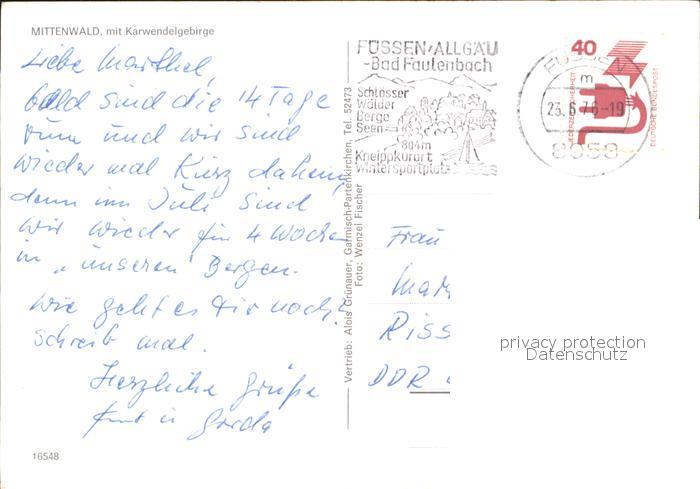 MITTENWALD, mit Karwendelgebirge
Liebe Marthel,
bald sind die 14 Tage
rum und wir sind
wieder mal Kurz daheim,
denn im Juli sind
wir wieder für 4 Wochen
in „unseren Bergen.
Wie geht es Dir noch?
Schreib mal.
Herzliche Grüße
Kurt u Gerda
16548
Vertrieb: Alois Grünauer, Garmisch-Partenkirchen, Tel. 52473
Foto: Wenzel Fischer
FÜSSEN/ALLGÄU
-Bad Faulenbach
Schlösser
Wälder
Berge
Seen
804m
Kneippkurort
Wintersportplatz
FÜSSEN 1
m
23.6.76-19
8958
40
JEDERZEIT SICHERHEIT
DEUTSCHE BUNDESPOST
Frau
Mar
Riss
DDR
privacy protection
Datenschutz